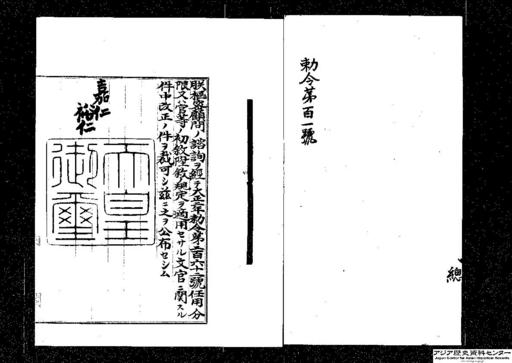 勅令第百一號
總
朕樞密顧問ノ諮詢ヲ經テ大正九年勅令第二百六十二號任用分
限又ハ官等ノ初敍陞敍ノ規定ヲ適用セサル文官ニ關スル
件中改正ノ件ヲ裁可シ茲ニ之ヲ公布セシム
嘉仁
裕仁
天皇
御璽
アジア歴史資料センター
Japan Center for Asian Historical Records